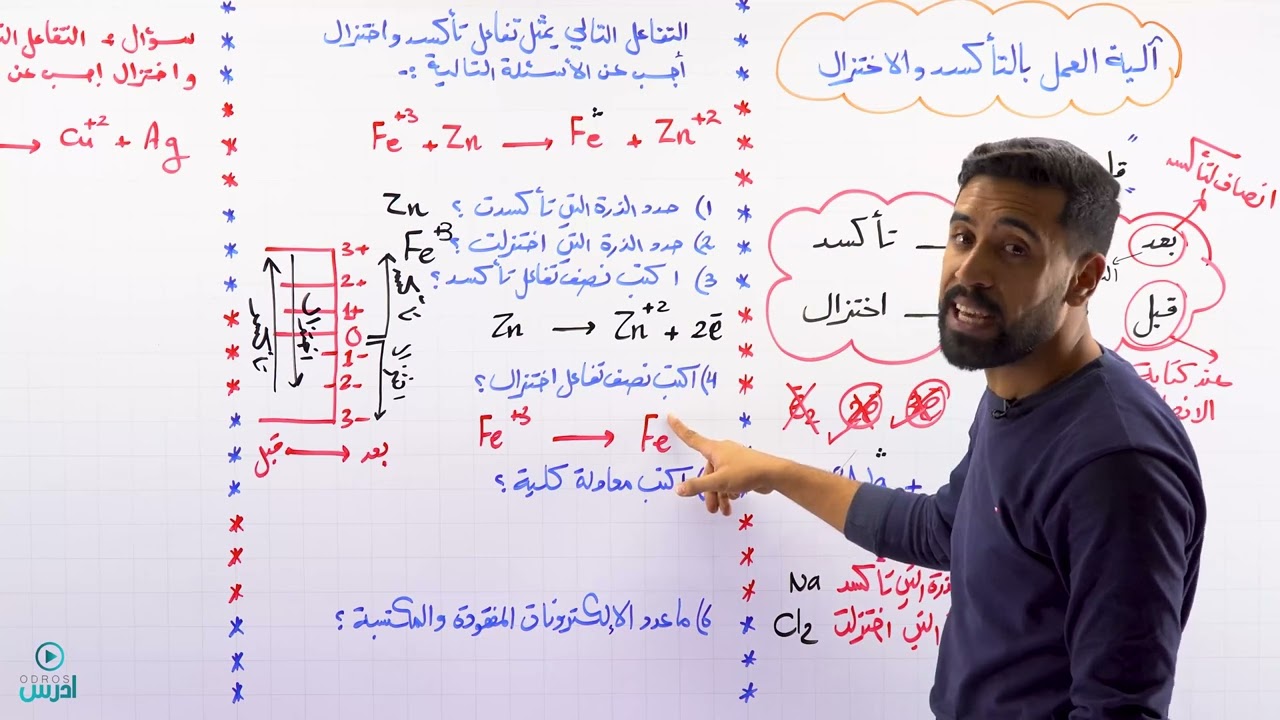 آلية العمل بالتأكسد والاختزال
انصاف لتأكسد
بعد
تأكسد
قبل
اختزال
عند كتابة
Na
التي تأكسد
Cl2
التي اختزلت
التفاعل التالي يمثل تفاعل تأكسد واختزال
أجب عن الأسئلة التالية :-
Fe+3 + Zn → Fe + Zn+2
1) حدد الذرة التي تأكسدت ؟ Zn
2) حدد الذرة التي اختزلت ؟ Fe+3
3) اكتب نصف تفاعل تأكسد ؟
Zn → Zn+2 + 2e-
4) اكتب نصف تفاعل اختزال ؟
Fe+3 → Fe
اكتب معادلة كلية ؟
6) ما عدد الإلكترونات المفقودة والمكتسبة ؟
3+
2+
1+
0
1-
2-
3-
قبل → بعد
سؤال :
واختزال اجب عن
→ Cu+2 + Ag
ODROS
ادرس